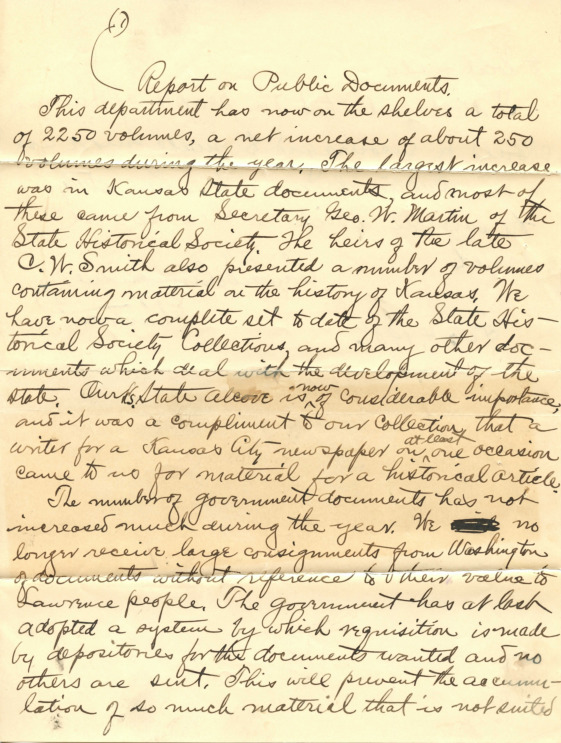 (1)
Report on Public Documents.
This department has now on the shelves a total
of 2250 volumes, a net increase of about 250
volumes during the year. The largest increase
was in Kansas State documents, and most of
these came from Secretary Geo. W. Martin of the
State Historical Society. The heirs of the late
C. W. Smith also presented a number of volumes
containing material on the history of Kansas. We
have now a complete set to date of the State His-
torical Society Collections, and many other doc-
uments which deal with the development of the
state. Our State alcove is now of considerable importance,
and it was a compliment to our collection that a
writer for a Kansas City newspaper on at least one occasion
came to us for material for a historical article.
The number of government documents has not
increased much during the year. We no
longer receive large consignments from Washington
of documents without reference to their value to
Lawrence people. The government has at last
adopted a system by which requisition is made
by depositories for the documents wanted and no
others are sent. This will prevent the accumu-
lation of so much material that is not suited